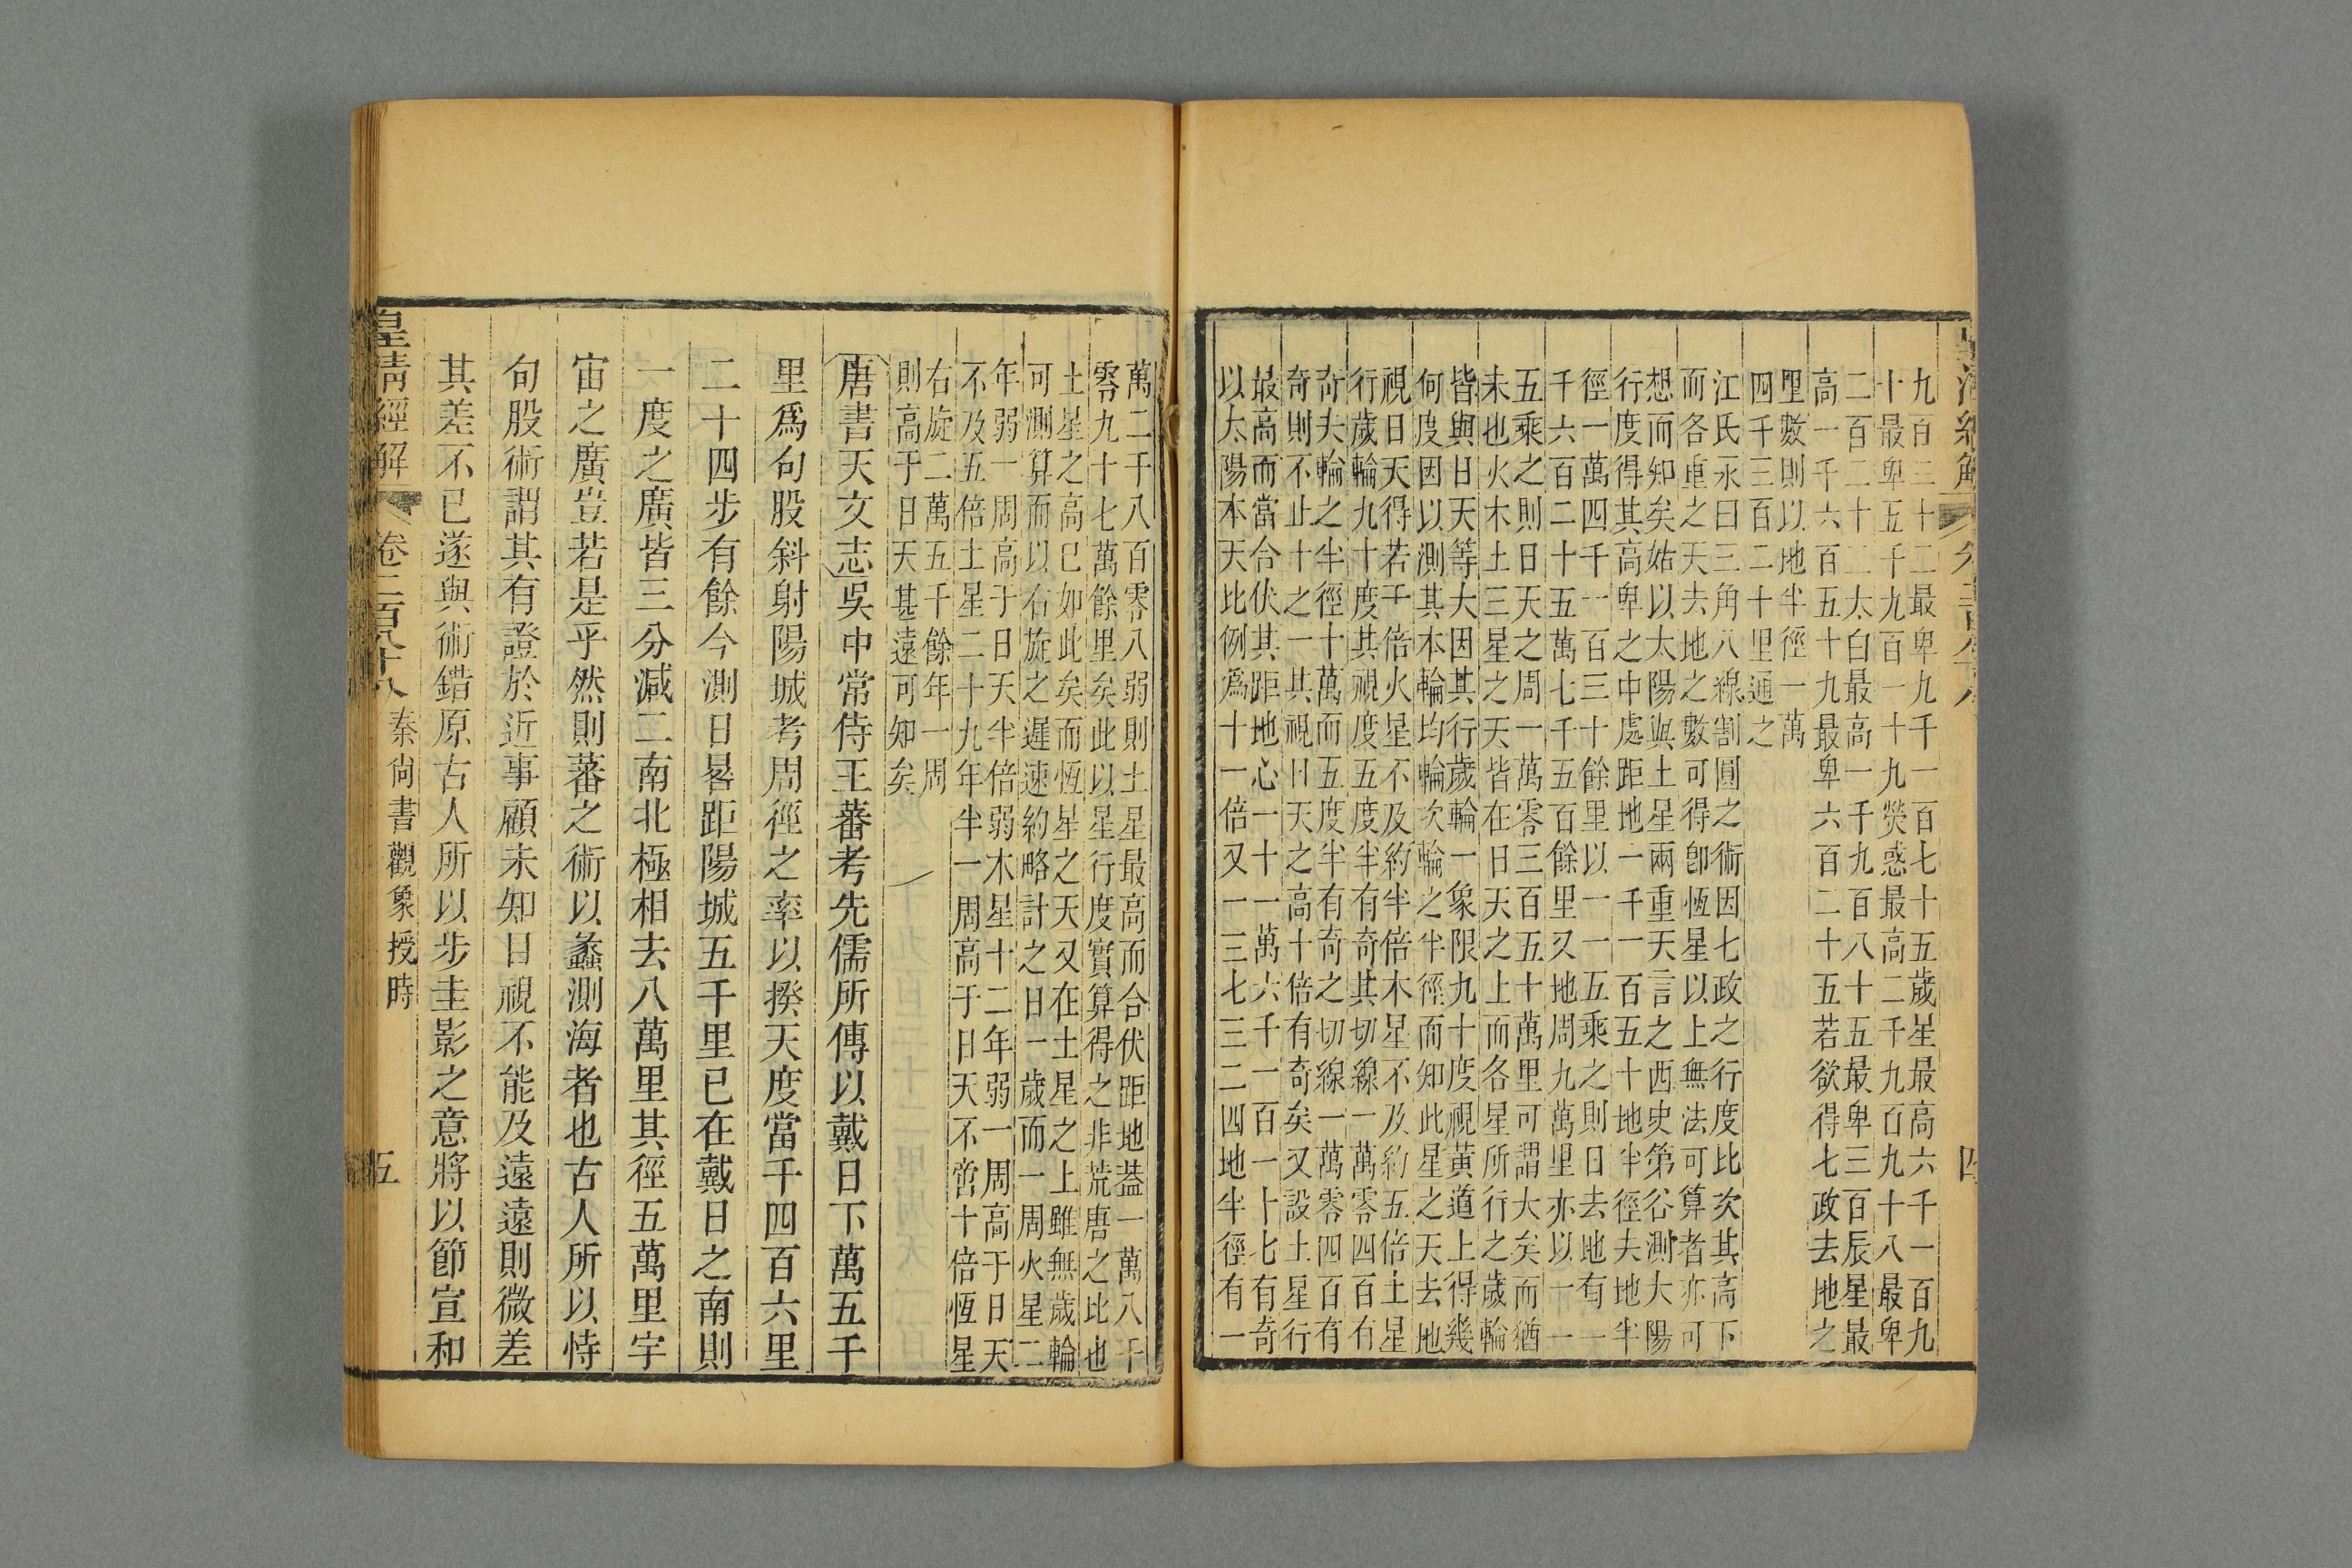 九百三十二最卑九千一百七十五歲星最高六千一百九
十最卑五千九百一十九熒惑最高二千九百九十八最卑
二百二十二太白最高一千九百八十五最卑三百辰星最
高一千六百五十九最卑六百二十五若欲得七政去地之
里數則以地半徑一萬
四千三百二十里通之
江氏永曰三角八線割圓之術因七政之行度比次其高下
而各重之天去地之數可得卽恆星以上無法可算者亦可
想而知矣姑以太陽與土星兩重天言之西史第谷測太陽
行度得其高卑之中處距地一千一百五十地半徑夫地半
徑一萬四千一百三十餘里以一一五乘之則日去地有一
千六百二十五萬七千五百餘里又地周九萬里亦以一一
五乘之則日天之周一萬零三百五十萬里可謂大矣而猶
未也火木土三星之天皆在日天之上而各星所行之歲輪
皆與日天等大因其行歲輪一象限九十度視黃道上得幾
何度因以測其本輪均輪次輪之半徑而知此星之天去地
視日天得若干倍火星不及約半倍木星不及約五倍土星
行歲輪九十度其視度五度半有奇其切線一萬零四百有
奇夫輪之半徑十萬而五度半有奇之切線一萬零四百有
奇則不止十之一其視日天之高十倍有奇矣又設土星行
最高而當合伏其距地心一十一萬六千一百一十七有奇
以太陽本天比例爲十一倍又一三七三二四地半徑有一
皇清經解
萬二千八百零八弱則土星最高而合伏距地葢一萬八千
零九十七萬餘里矣此以星行度實算得之非荒唐之比也
土星之高已如此矣而恆星之天又在土星之上雖無歲輪
可測算而以右旋之遲速約略計之日一歲而一周火星二
年弱一周高于日天半倍弱木星十二年弱一周高于日天
不及五倍土星二十九年半一周高于日天不啻十倍恆星
右旋二萬五千餘年一周
則高于日天甚遠可知矣
唐書天文志吳中常侍王蕃考先儒所傳以戴日下萬五千
里爲句股斜射陽城考周徑之率以揆天度當千四百六里
二十四步有餘今測日晷距陽城五千里已在戴日之南則
一度之廣皆三分減二南北極相去八萬里其徑五萬里宇
宙之廣豈若是乎然則蕃之術以蠡測海者也古人所以恃
句股術謂其有證於近事顧未知日視不能及遠遠則微差
其差不已遂與術錯原古人所以步圭影之意將以節宣和
皇清經解 卷二百八十八 秦尚書觀象授時 五